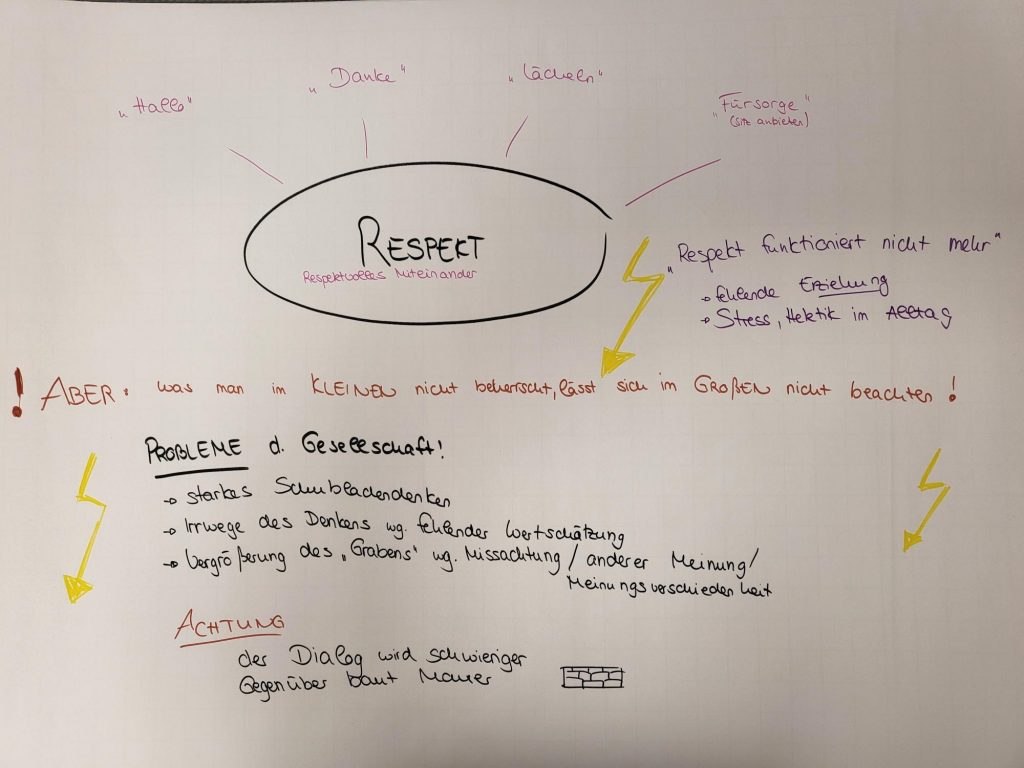 „Hallo"
„Danke"
„Lächeln"
„Fürsorge"
(Sitz anbieten)
RESPEKT
Respektvolles Miteinander
„Respekt funktioniert nicht mehr"
→ fehlende Erziehung
→ Stress, Hektik im Alltag
! ABER: was man im KLEINEN nicht beherrscht, lässt sich im GROßEN nicht beachten!
PROBLEME d. Gesellschaft!
→ starkes Schubladendenken
→ Irrwege des Denkens wg. fehlender Wertschätzung
→ Vergrößerung des „Grabens" wg. Missachtung / anderer Meinung /
Meinungsverschiedenheit
ACHTUNG
der Dialog wird schwieriger
Gegenüber baut Mauer